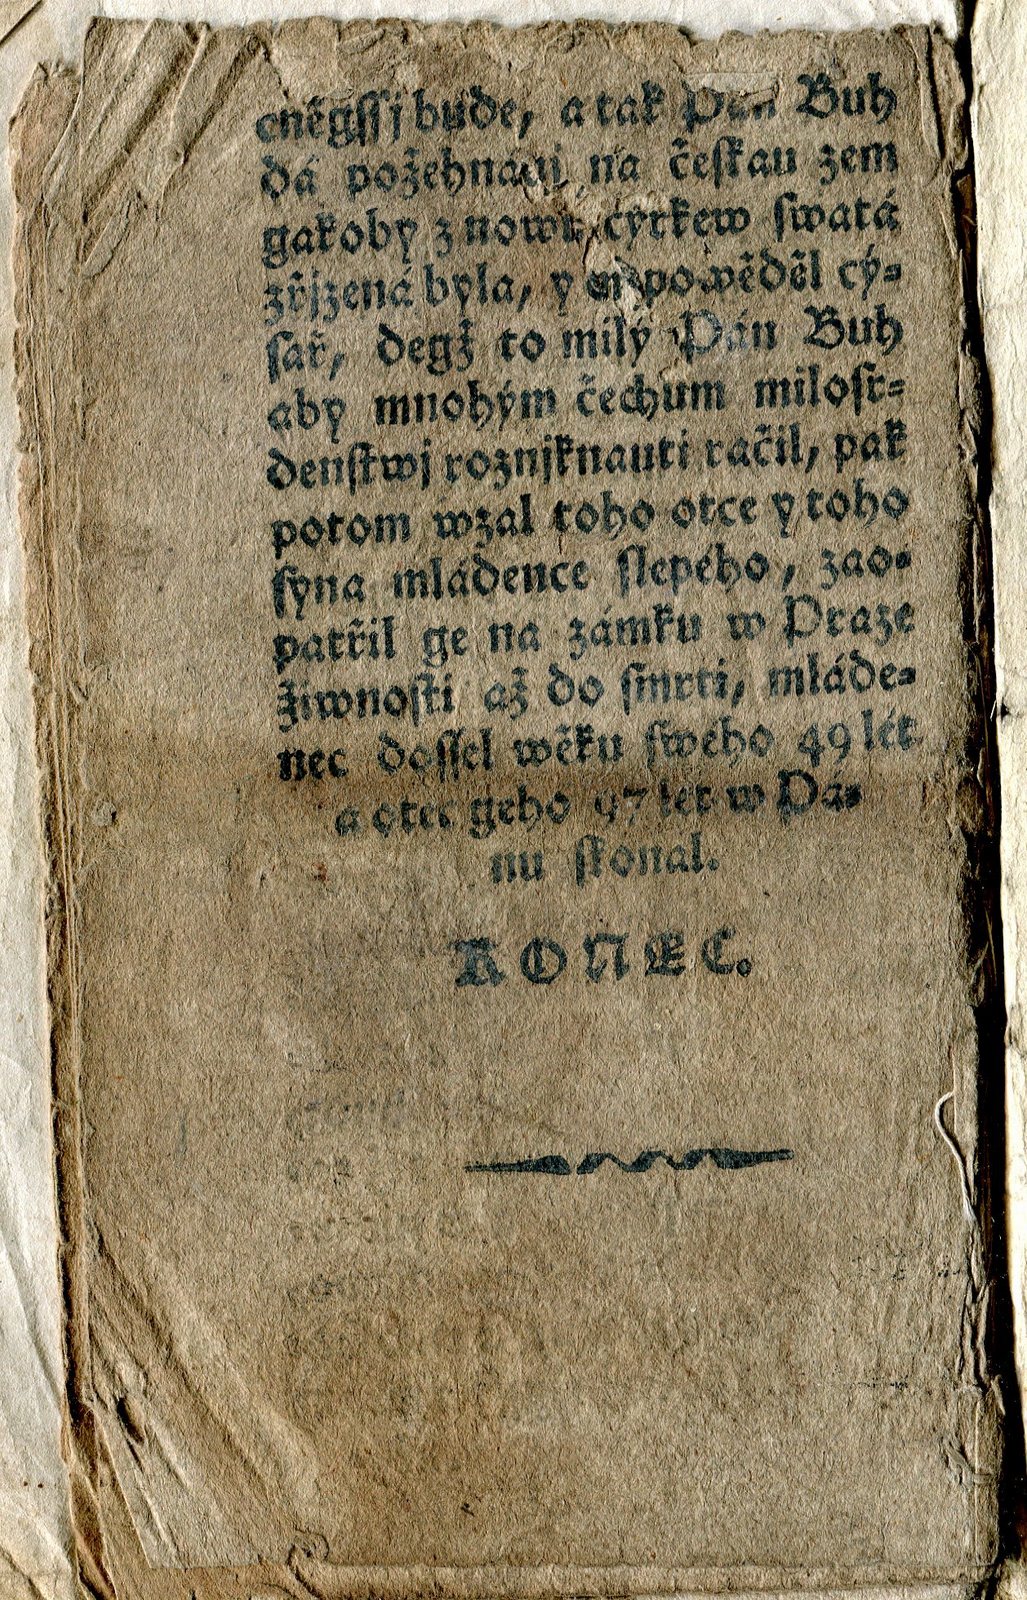 cněgssj bude, a tak Pán Buh
dá požehnánj na českau zem
gakoby z nowu cyrkew swatá
zřjzená byla, y odpowěděl cý-
sař, degž to milý Pán Buh
aby mnohým čechum milosr-
denstwj roznjknauti račil, pak
potom wzal toho otce y toho
syna mládence slepého, zao-
patřil ge na zámku w Praze
žiwnosti až do smrti, mláde-
nec dossel wěku swého 49 lét
a otec geho 97 let w Pá-
nu skonal.
KONEC.